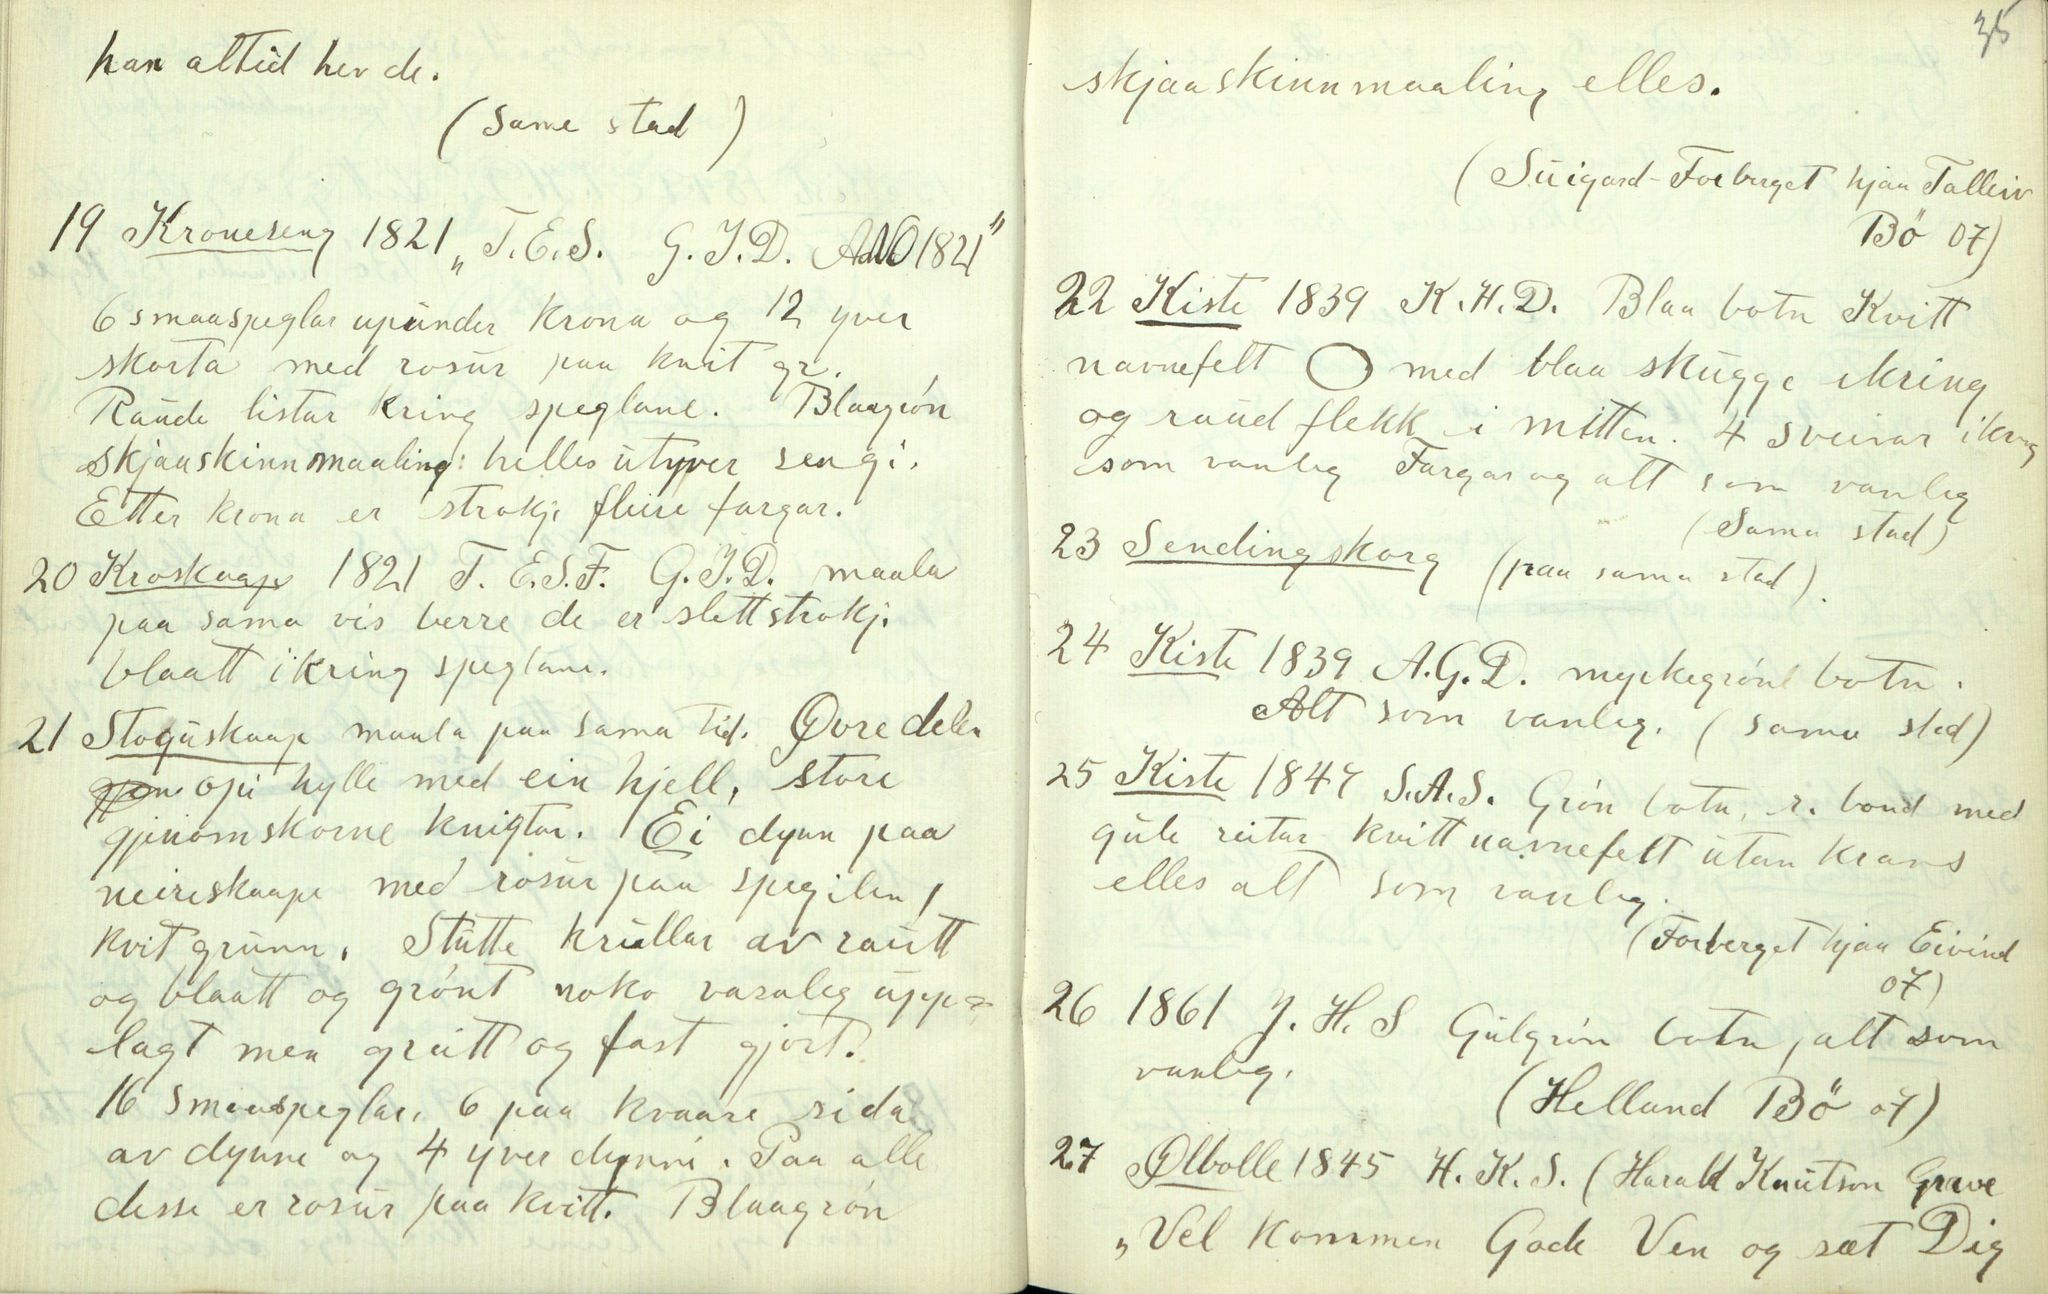 han altid hev de.
(Same stad)
19 Kroneseng 1821 „T.E.S. G.J.D. ANO 1821"
6 smaaspeglar upunder krona og 12 yver
skorta med rosur paa kvit gr.
Raude listar kring speglane. Blaagrön
skjaaskinnmaaling: helles utyver sengi.
Etter krona er strokji fleire fargar.
20 Kroskaap 1821 T.E.S.F. G.J.D. maala
paa sama vis berre de er slett strokji
blaatt ikring speglane.
21 Stoguskaap maala paa sama tid. Øvre delen
opi hylle med ein hjell, store
gjenomskorne knigtar. Ei dynn paa
neireskaape med rosur paa spegilen,
kvit grunn. Stutte krullar av rautt
og blaatt og grönt noko varaleg upp-
lagt men greitt og fast gjort.
16 smaaspeglar, 6 paa kvaare sida
av dynne og 4 yver dynni. Paa alle
desse er rosur paa kvitt. Blaagrön
35
skjaaskinnmaaling elles.
(Suigard-Forberget hjaa Talleiv
Bö 07)
22 Kiste 1839 K.H.D. Blaa botn Kvitt
navnefelt O med blaa skugge ikring
og raud flekk i mitten. 4 sveivar ikring
som vanleg Fargar og alt som vanleg
(Sama stad)
23 Sendingskorg (paa sama stad).
24 Kiste 1839 A.G.D. myrkegröne botn.
Alt som vanleg. (sama stad)
25 Kiste 1847 S.A.S. Grön botn, r. bond med
gule reitar kvitt navnefelt utan krans
elles alt som vanleg.
(Forberget hjaa Eivind
07)
26 1861 J.H.S Gulgrön botn, alt som
vanleg.
(Helland Bö 07)
27 Ølbolle 1845 H.K.S. (Harald Knutson Grave
„Vel kommen Gode Ven og sæt Dig